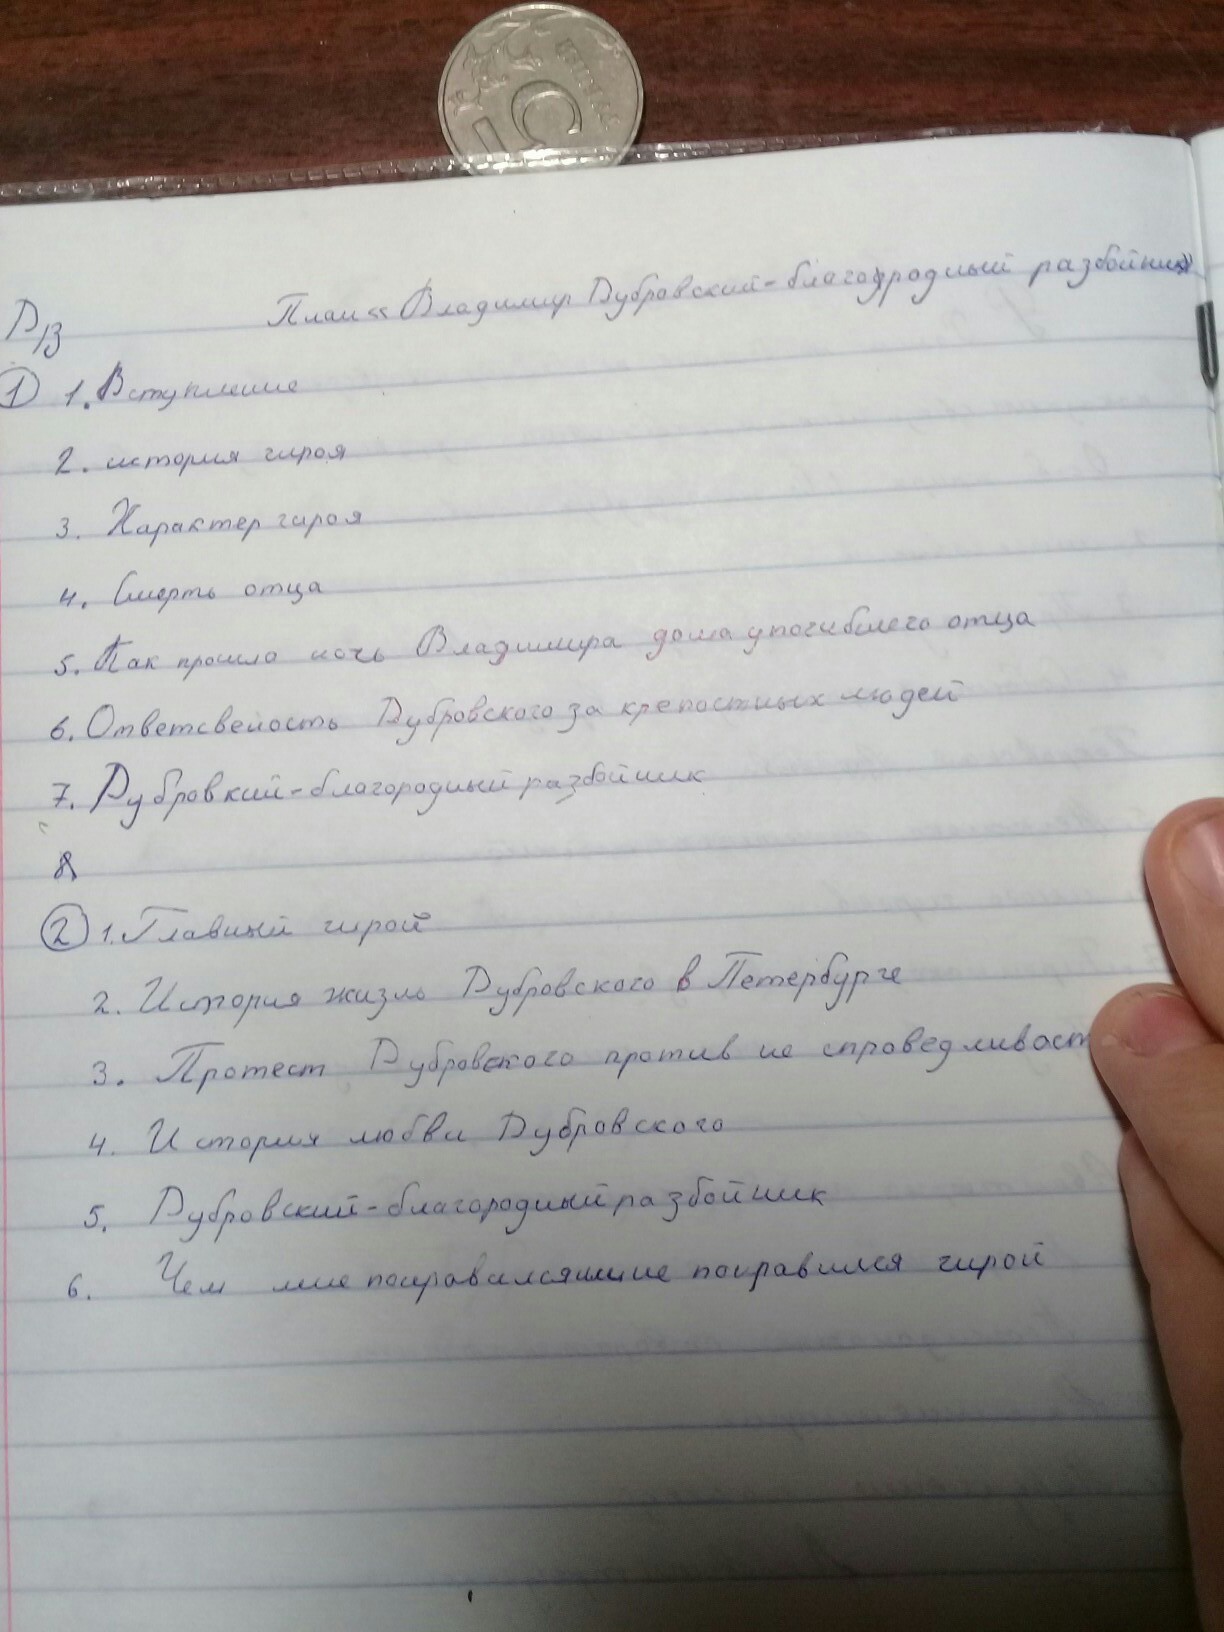 План «Владимир Дубровский-благородный разбойник»
Д/З
1 1. Вступление
2. история гироя
3. Характер гироя
4. Смерть отца
5. Как прошла ночь Владимира дома у погибшего отца
6. Ответсвеность Дубровского за крепостных людей
7. Дубровкий-благородный разбойник
8
2 1. Главный гирой
2. История жизнь Дубровского в Петербурге
3. Протест Дубровского против не справедливост
4. История любви Дубровского
5. Дубровский-благородный разбойник
6. Чем мне понравился мне понравился гирой